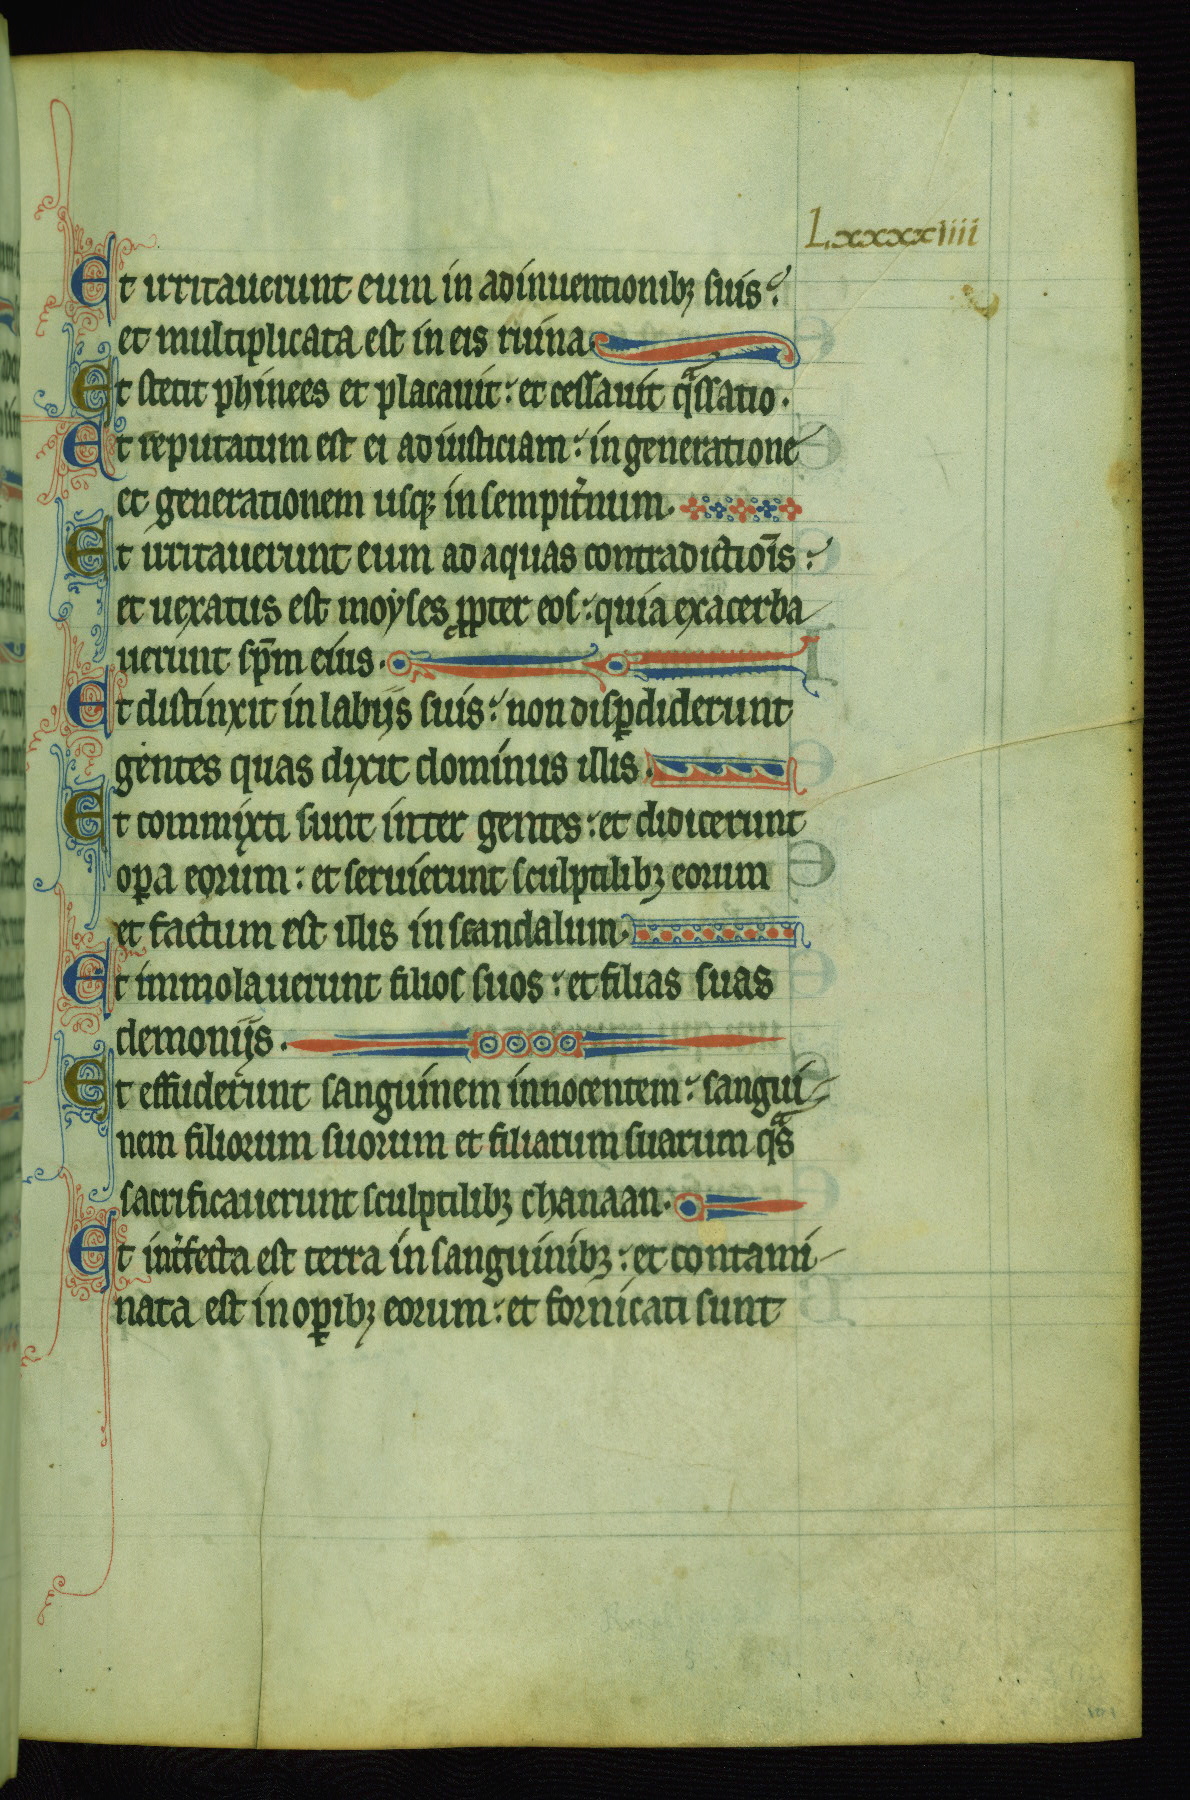 L.xxxxiiii
Et irritauerunt eum in adinuentionibꝫ suis:
et multiplicata est in eis ruina
Et stetit phinees et placauit: et cessauit qᵃssatio.
Et reputatum est ei ad iusticiam: in generatione
et generationem usqꝫ in sempit̉num.
Et irritauerunt eum ad aquas contradictiōis:
et uexatus est moyses ꝓpter eos: quia exacerba
uerunt sp̄m eius.
Et distinxit in labijs suis: non disꝑdiderunt
gentes quas dixit dominus illis.
Et commixti sunt inter gentes: et didicerunt
oꝑa eorum: et seruierunt sculptilibꝫ eorum
et factum est illis in scandalum.
Et immolauerunt filios suos: et filias suas
demonijs.
Et effuderunt sanguinem innocentem: sangui
nem filiorum suorum et filiarum suarum qᵃs
sacrificauerunt sculptilibꝫ chanaan.
Et int̉fecta est terra in sanguinibꝫ: et contami
nata est in oꝑibꝫ eorum: et fornicati sunt